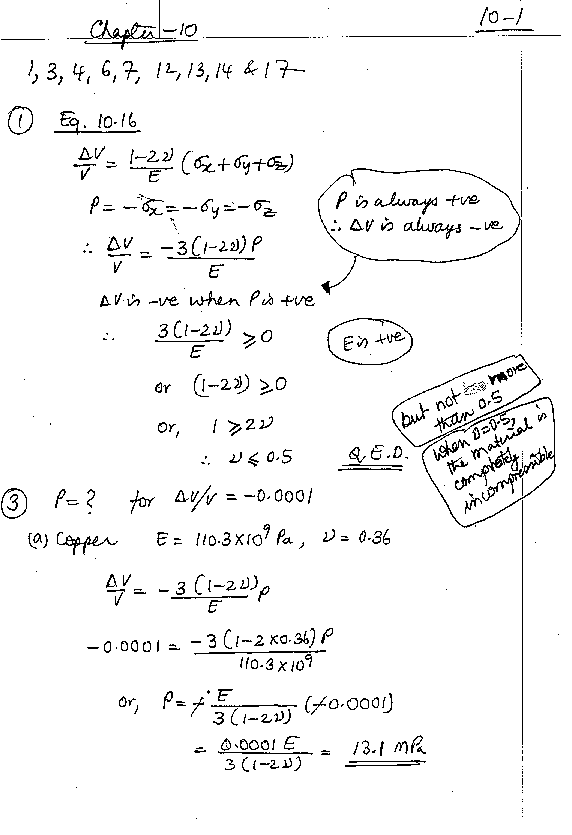 10-1
Chapter-10
1, 3, 4, 6, 7, 12, 13, 14 & 17
① Eq. 10.16
ΔV/V = (1-2ν)/E (σx + σy + σz)
P = -σx = -σy = -σz
∴ ΔV/V = -3(1-2ν)P/E
P is always +ve
∴ ΔV is always -ve
ΔV is -ve when P is +ve
∴ 3(1-2ν)/E ⩾ 0
E is +ve
or (1-2ν) ⩾ 0
or, 1 ⩾ 2ν
∴ ν ⩽ 0.5
Q.E.D.
but not more
than 0.5
When ν=0.5,
the material is
completely
incompressible
③ P = ? for ΔV/V = -0.0001
(a) Copper E = 110.3×10⁹ Pa, ν = 0.36
ΔV/V = -3(1-2ν)/E P
-0.0001 = -3(1-2×0.36)P/110.3×10⁹
or, P = -E/3(1-2ν) (-0.0001)
= 0.0001 E/3(1-2ν) = 13.1 MPa